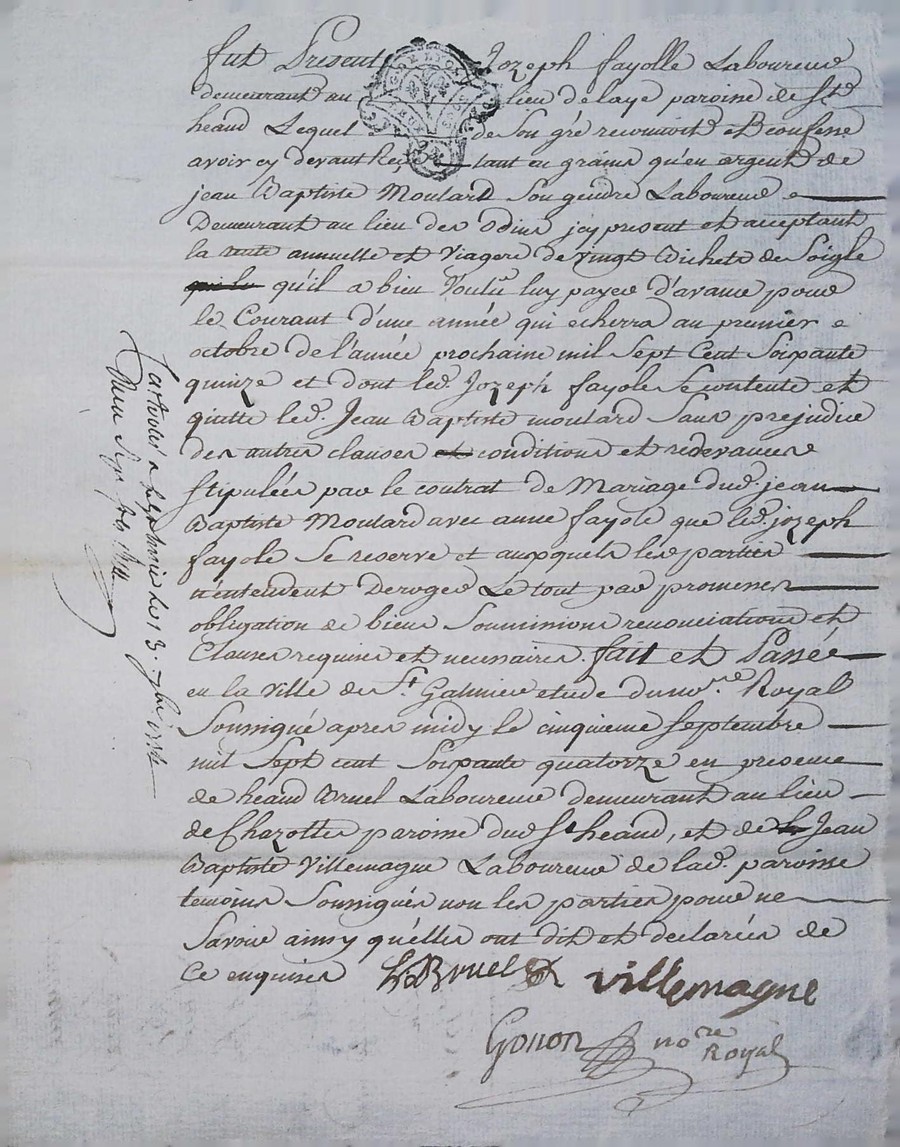 fut Présent Jozeph fayolle Laboureur
demeurant au lieu de laye paroisse de St
heand Lequel de Son gré reconnoit et Confesse
avoir cy devant Reçu tant en grains qu'en argent de
jean Baptiste Moulard Son gendre Laboureur
Demeurant au lieu des Odins icy present et acceptant
la rente annuelle et Viagere de vingt Bichets de Soigle
qu'il a bien Voulu luy payer d'avance pour
le Courant d'une année qui echerra au premier
octobre de l'année prochaine mil Sept Cent Soixante
quinze et dont led. Jozeph fayole Se contente et
quitte led. Jean Baptiste moulard Sans prejudice
des autres clauses et conditions et redevances
Stipulées par le contrat de Mariage dud. jean
Baptiste Moulard avec anne fayole que led. jozeph
fayole Se reserve et auxquels les parties
n'entendent Deroger Le tout par promesses
obligation de biens Soumissions renonciations et
Clauses requises et necessaires. fait et Passé
en la ville de St. Galmier etude du nore. Royal
Soussigné apres midy le cinquieme Septembre
mil Sept cent Soixante quatorze en presence
de heand Bruel Laboureur demeurant au lieu
de Chazottes paroisse dud St heand, et de Jean
Baptiste Villemagne Laboureur de lad. paroisse
temoins Soussignés non les parties pour ne
Savoir ainsy qu'elles ont dit et declarées de
Ce enquises
h. Bruel
villemagne
Gonon nore Royal
G. DE LYON
13. 7bre 1774